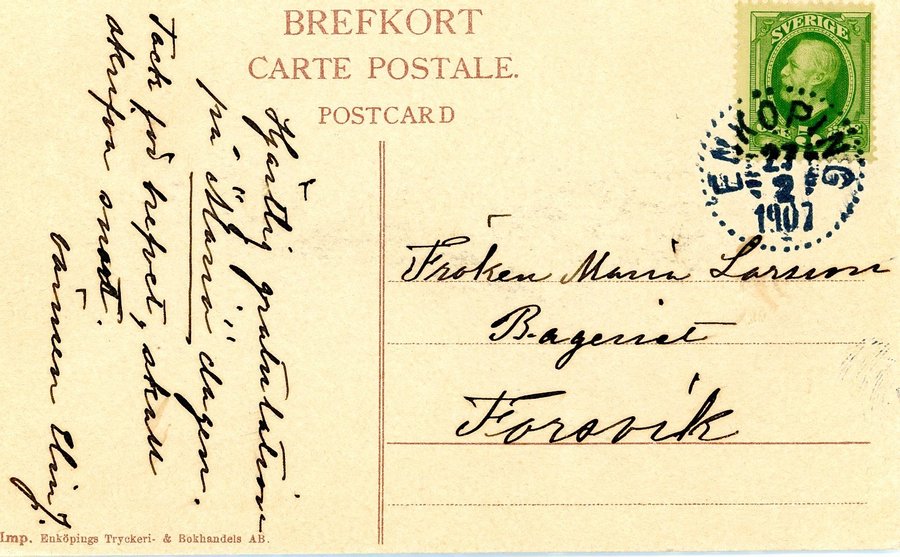 BREFKORT
CARTE POSTALE.
POSTCARD
SVERIGE
ENKÖPING
27
2
1907
Hjärtlig gratulation
på "Maria" dagen.
Tack för brefvet, skall
skrifva snart.
vännen Elin J.
Fröken Maria Larsson
Bageriet
Forsvik
Imp. Enköpings Tryckeri- & Bokhandels AB.